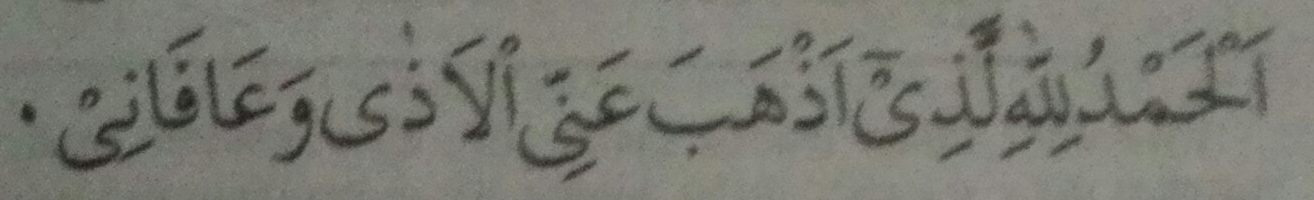 اَلْحَمْدُ لِلّٰهِ لَّذِىْٓ اَذْهَبَ عَنِّى اْلاَذٰى وَعَافَانِىْ.